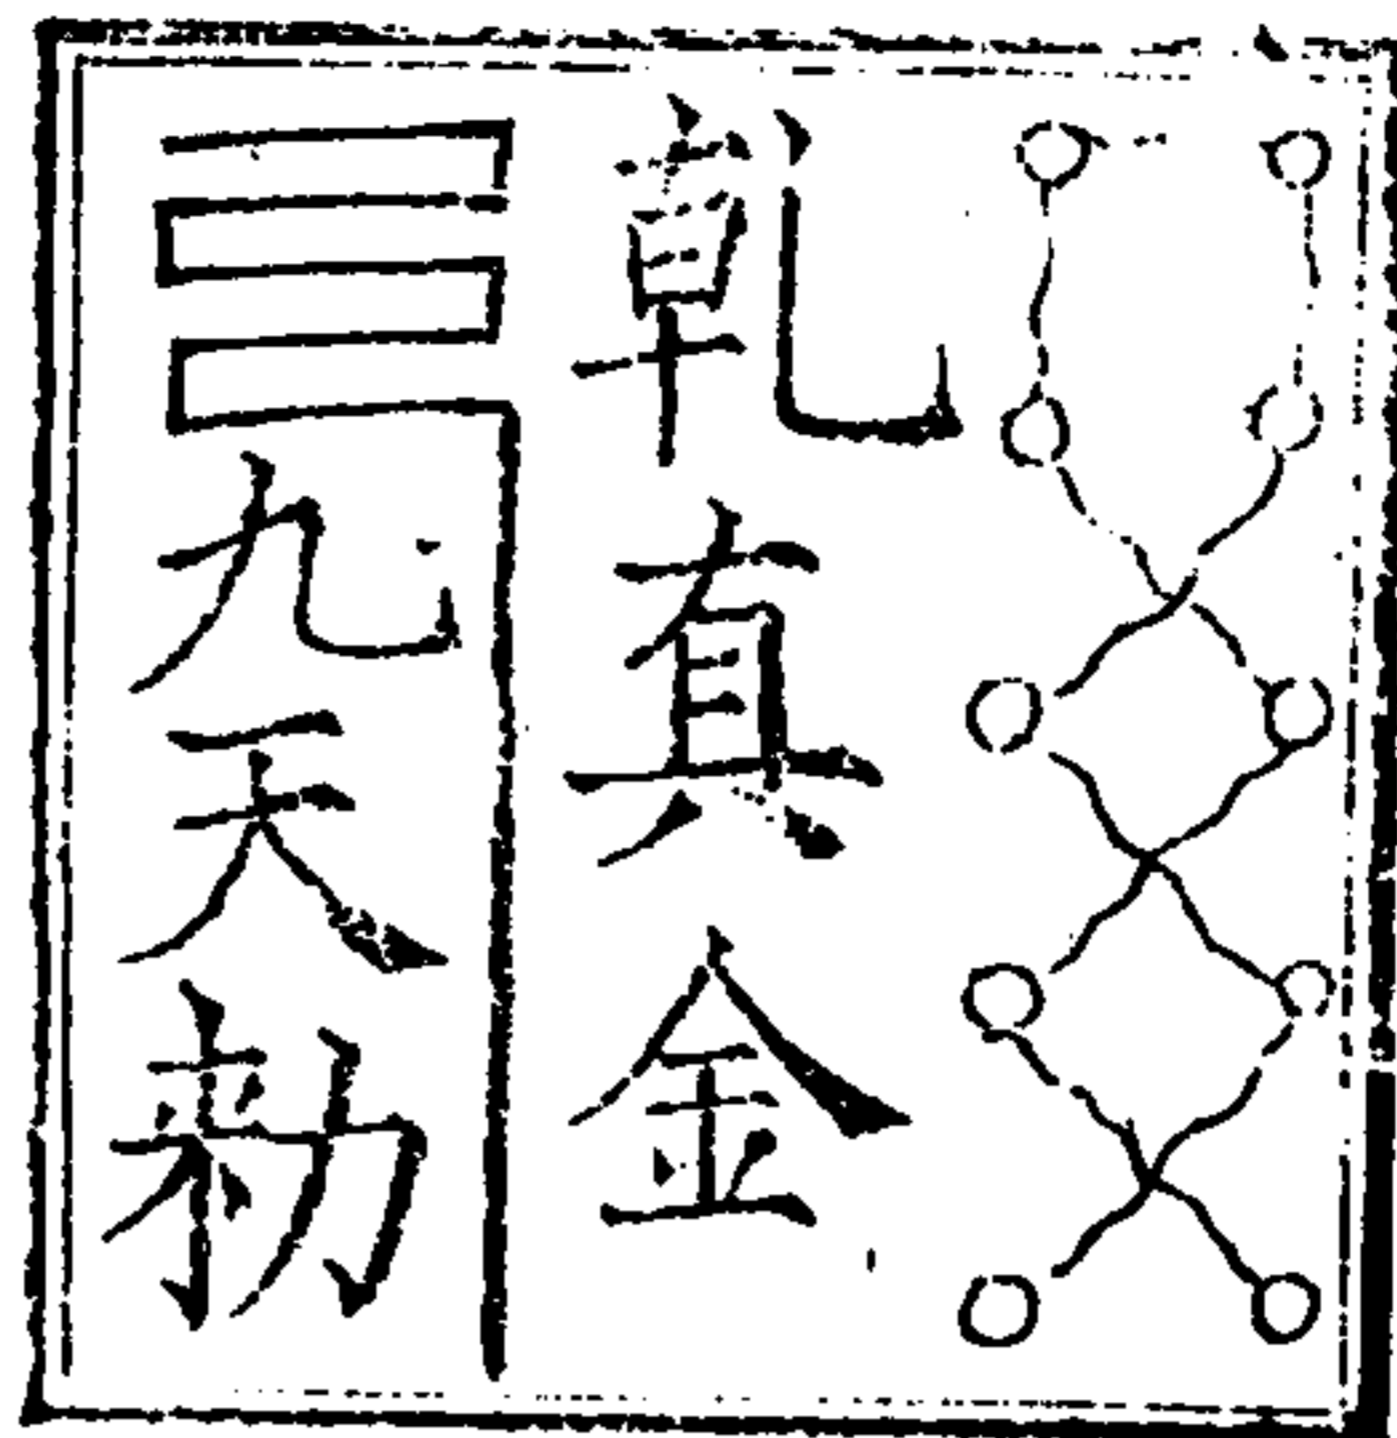 乹真金
九天勑